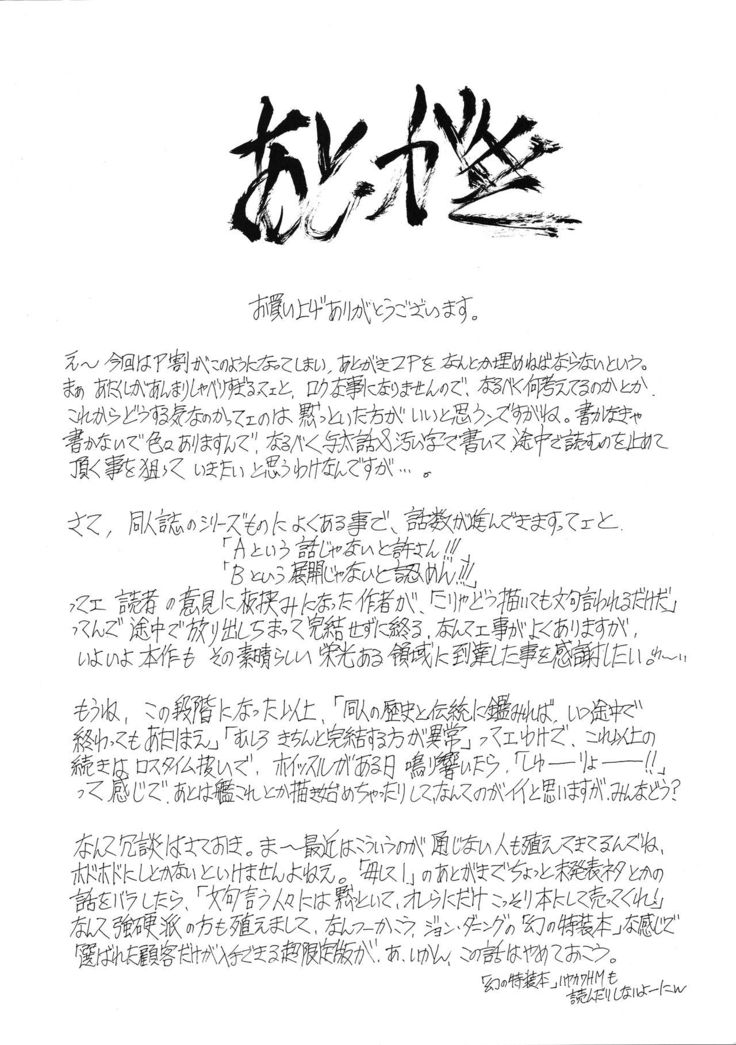 あとがき
お買い上げありがとうございます。
え〜 今回はP割がこのようになってしまい、あとがき2Pを なんとか埋めねばならないという。
まぁ あたくしがあんまりしゃべりすぎるってェと、ロクな事になりませんので、なるべく何考えてるのかとか、
これからどうする気なのかってェのは 黙っといた方が いいと思うンですがね。書かなきゃ
書かないで色々ありますんで、なるべく 与太話&汚い字で書いて 途中で読むのを止めて
頂く事を狙って いきたい と思うわけなんですが…。
さて、同人誌のシリーズものに よくある事で、話数が進んできますってェと、
「Aという 話じゃないと許さん!!!」
「Bという 展開じゃないと認めん!!!」
ってェ 読者の意見に板挟みになった作者が、「こりゃどう描いても文句言われるだけだ」
ってんで 途中で放り出しちまって完結せずに終る、なんてェ事がよくありますが、
いよいよ本作も その素晴らしい 栄光ある 領域に到達した事を感謝したい。
もうね、この段階になった以上、「同人の歴史と伝統に鑑みれば、いつ途中で
終わってもあたぼぇ」「むしろ きちんと完結する方が異常」ってェわけで、これ以上の
続きは ロスタイム扱いで、ホイッスルがある日 鳴り響いたら、「しゅーーりょーーー!!」
って 感じで、あとは艦これとか描き始めちゃったりして、なんてのがイイと思いますが、みんなどう?
なんて冗談はさておき。ま〜最近はこういうのが 通じない人も殖えてきてるんでね、
ホドホドにしとかないといけませんよねえ。「毋して1」のあとがきでちょっと未発表ネタとかの
話をバラしたら、「文句言う人々には黙といて、オレらにだけ こっそり本にして売ってくれ」
なんて 強硬派の方も殖えまして、なんつーかこう、ジョン・ダニングの「幻の特装本」な感じで
「選ばれた顧客だけが入手できる超限定版が、あ、いかん、この話はやめておこう。
「幻の特装本」ハヤカワHMも
読んだりしないよーにw